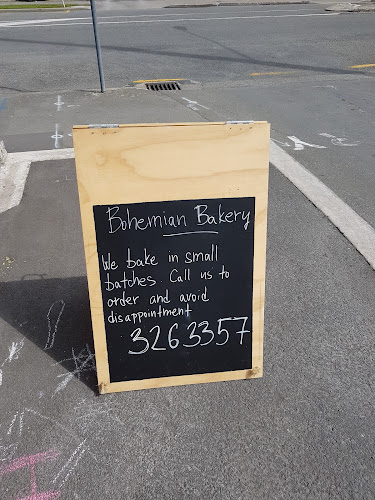 Bohemian Bakery
We bake in small
batches. Call us to
order and avoid
disappointment
3263357